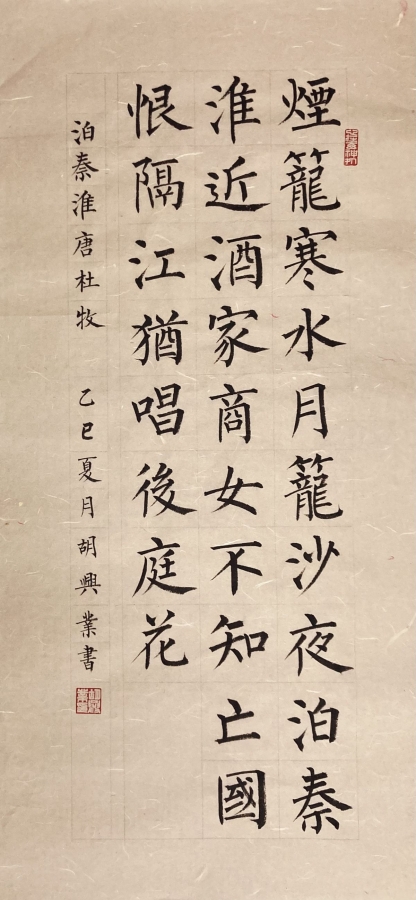 煙籠寒水月籠沙夜泊秦
淮近酒家商女不知亡國
恨隔江猶唱後庭花
泊秦淮唐杜牧 乙巳夏月胡興業書